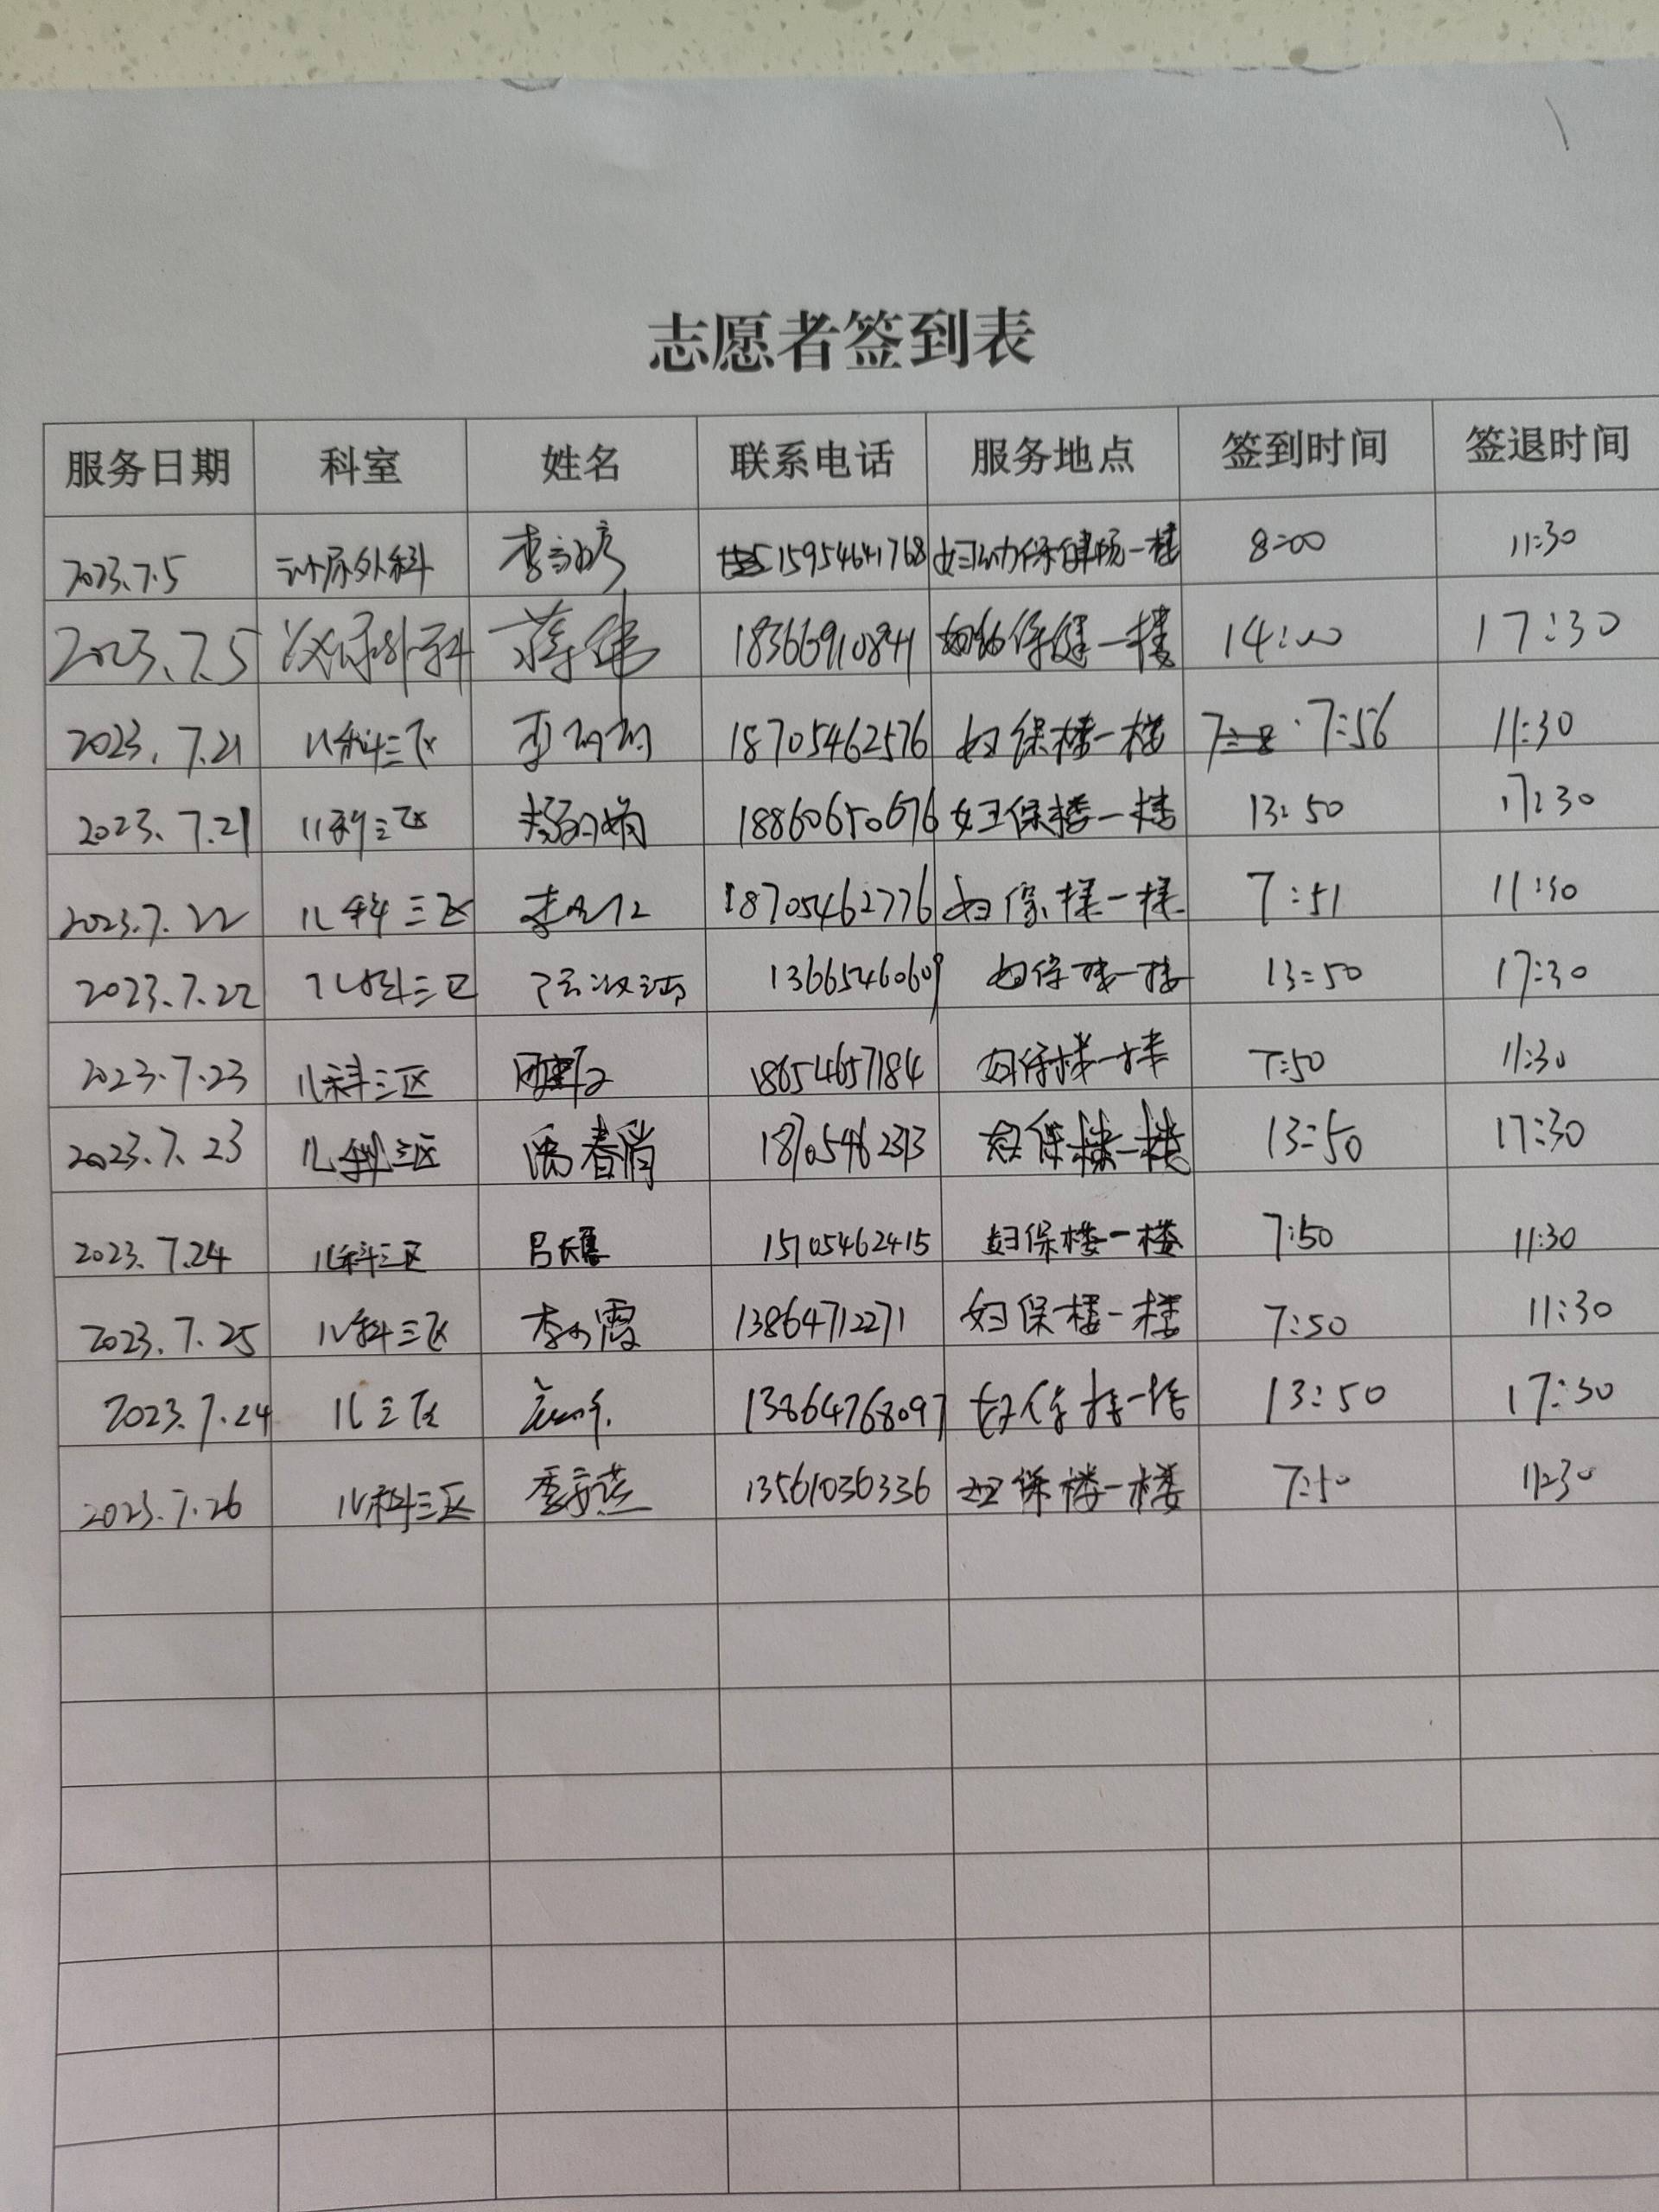 志愿者签到表
服务日期 科室 姓名 联系电话 服务地点 签到时间 签退时间
2023.7.5 泌尿外科 李 15954641768 妇幼保健院一楼 8:00 11:30
2023.7.5 泌尿外科 蒋伟 18366910841 妇幼保健一楼 14:00 17:30
2023.7.21 儿科三区 18705462576 妇保楼一楼 7:56 11:30
2023.7.21 儿科三区 杨 18860650676 妇保楼一楼 13:50 17:30
2023.7.22 儿科三区 李 18705462776 妇保楼一楼 7:51 11:30
2023.7.22 儿科三区 13665460609 妇保楼一楼 13:50 17:30
2023.7.23 儿科三区 18654657184 妇保楼一楼 7:50 11:30
2023.7.23 儿科三区 春 18705462313 妇保楼一楼 13:50 17:30
2023.7.24 儿科三区 吕 15705462415 妇保楼一楼 7:50 11:30
2023.7.25 儿科三区 李 霞 13864712271 妇保楼一楼 7:50 11:30
2023.7.24 儿三区 13864768097 妇保楼一楼 13:50 17:30
2023.7.26 儿科三区 13561036336 妇保楼一楼 7:50 11:30